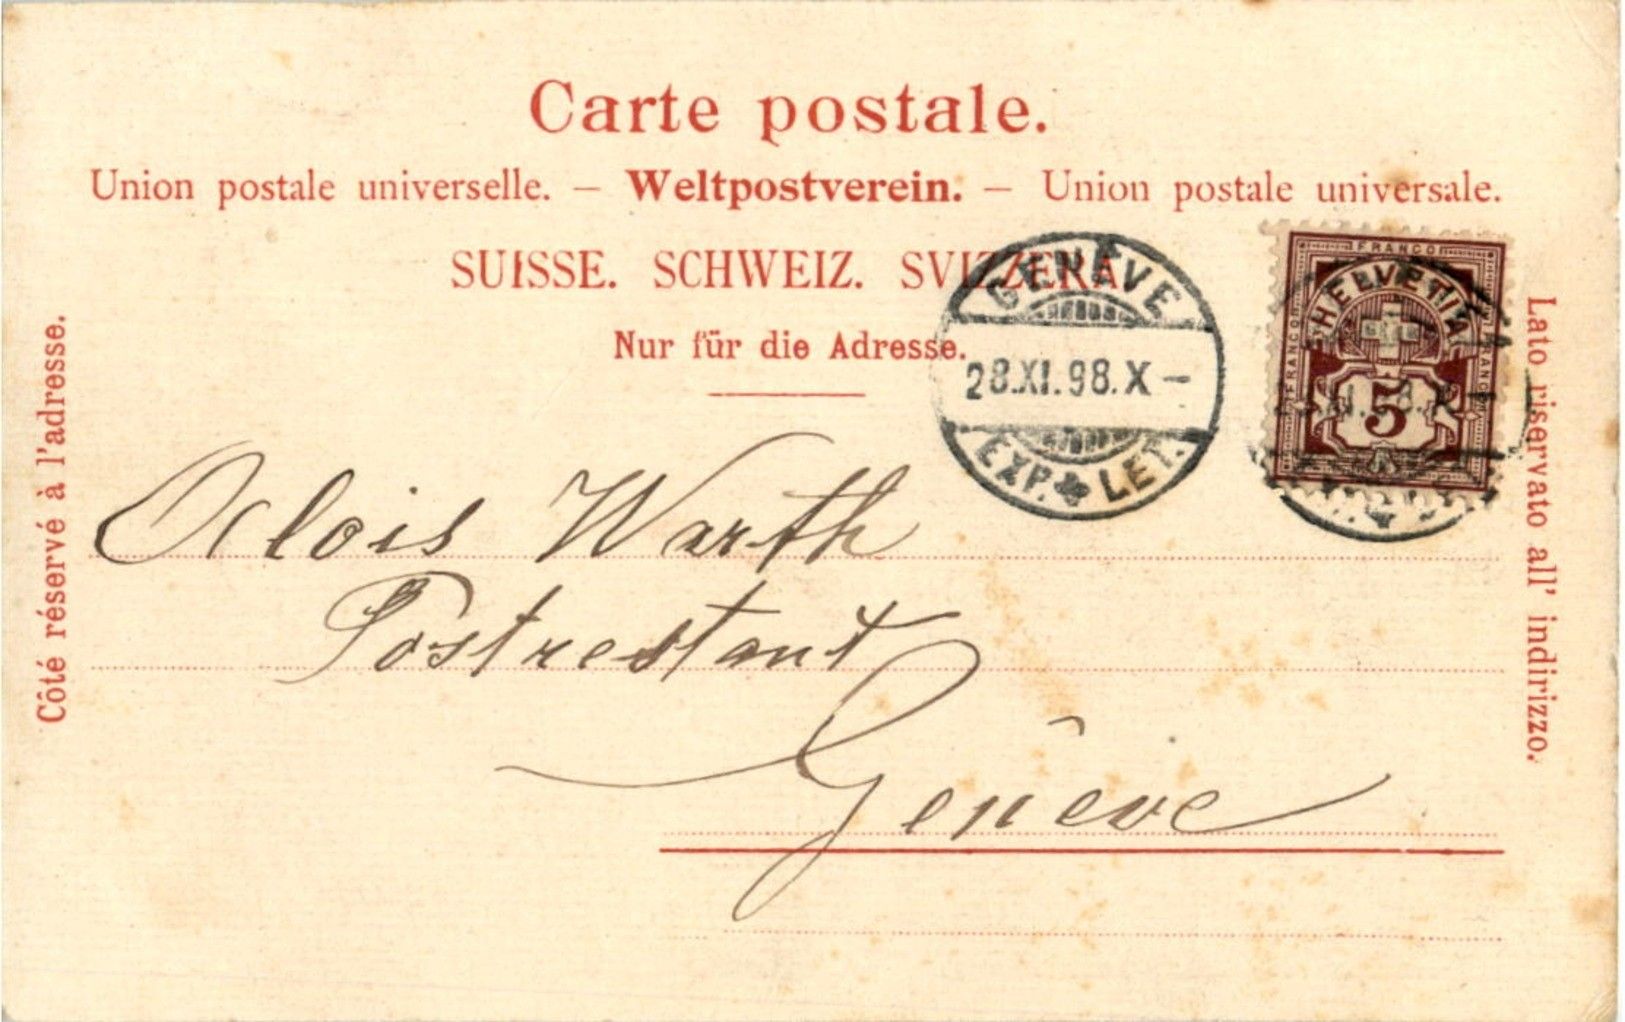 Carte postale.
Union postale universelle. — Weltpostverein. — Union postale universale.
SUISSE. SCHWEIZ. SVIZZERA.
Nur für die Adresse.
Côté réservé à l'adresse.
Lato riservato all' indirizzo.
GENÈVE
28.XI.98.X—
EXP. LET.
FRANCO
FRANCO
FRANCO
HELVETIA
5
Alois Warth
Postrestant
Genève